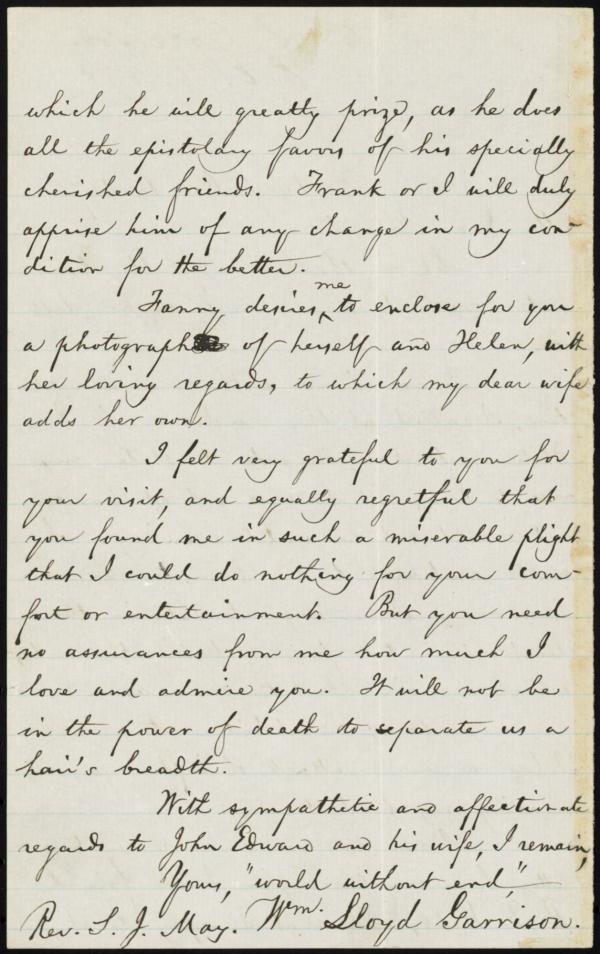 which he will greatly prize, as he does
all the epistolary favors of his specially
cherished friends. Frank or I will duly
apprise him of any change in my con-
dition for the better.
Fanny desires me to enclose for you
a photograph of herself and Helen, with
her loving regards, to which my dear wife
adds her own.
I felt very grateful to you for
your visit, and equally regretful that
you found me in such a miserable plight
that I could do nothing for your com-
fort or entertainment. But you need
no assurances from me how much I
love and admire you. It will not be
in the power of death to separate us a
hair's breadth.
With sympathetic and affectionate
regards to John Edward and his wife, I remain,
Yours, "world without end",
Rev. S. J. May. Wm. Lloyd Garrison.